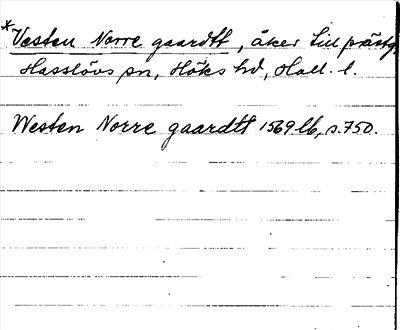 *Vesten Norre gaardtt, åker till prästg.
Hasslövs sn, Höks hd, Hall. l.
Westen Norre gaardtt 1569 lb, s. 750.